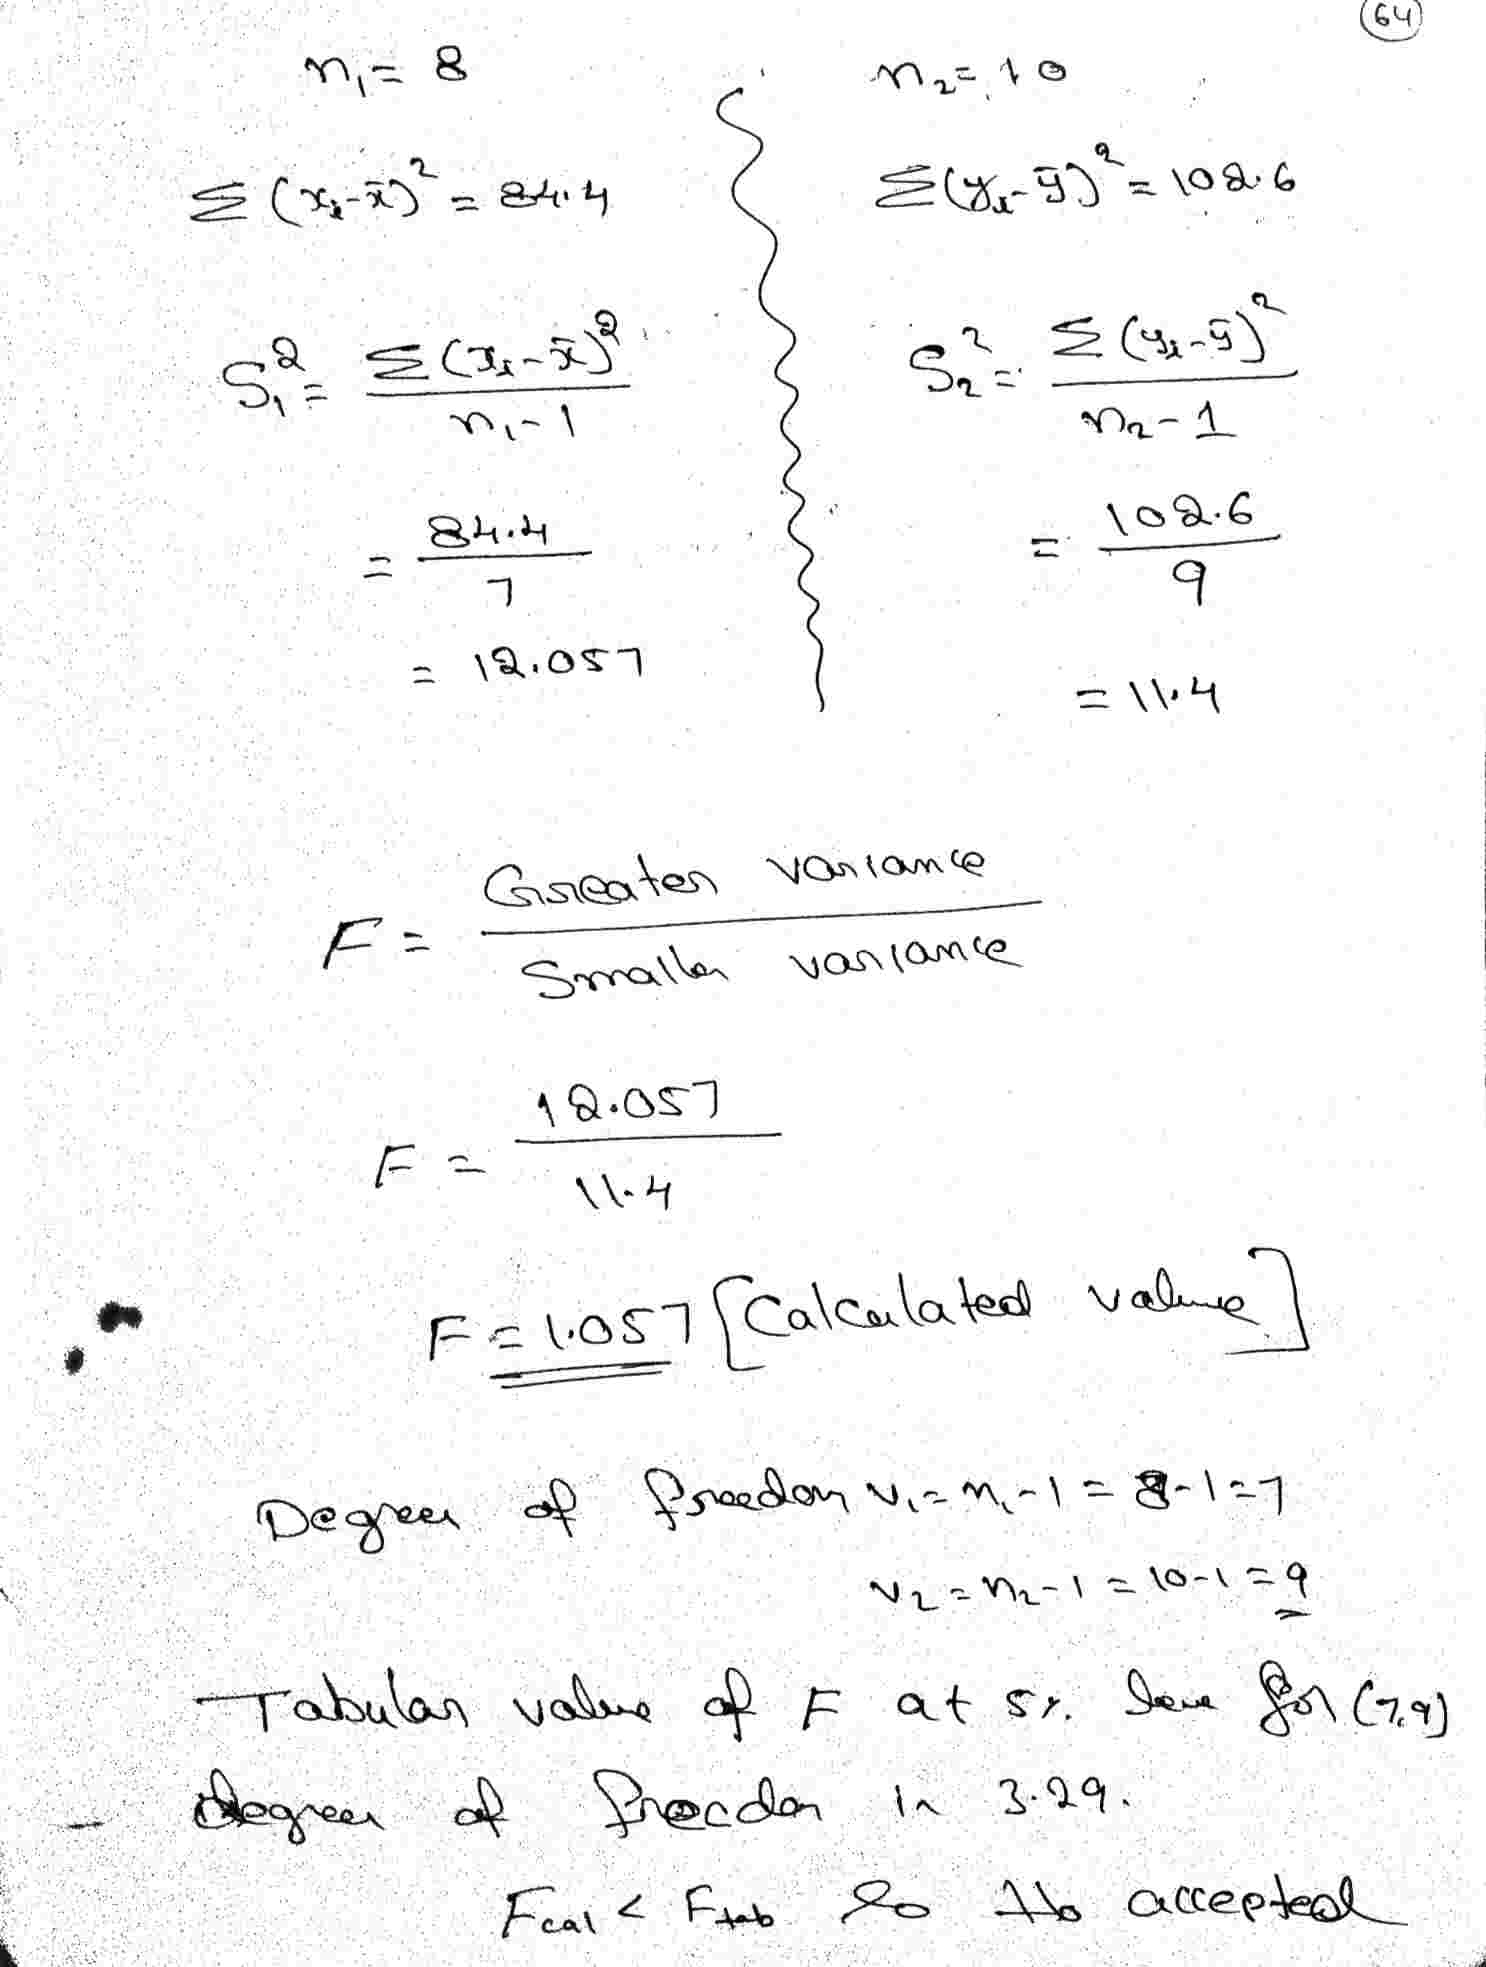 64
n₁ = 8
Σ(xᵢ-x̄)² = 84.4
S₁² = Σ(xᵢ-x̄)² / n₁-1
= 84.4 / 7
= 12.057
n₂ = 10
Σ(yᵢ-ȳ)² = 102.6
S₂² = Σ(yᵢ-ȳ)² / n₂-1
= 102.6 / 9
= 11.4
F = Greater variance / Smaller variance
F = 12.057 / 11.4
F = 1.057 [Calculated value]
Degree of freedom v₁ = n₁-1 = 8-1=7
v₂ = n₂-1 = 10-1 = 9
Tabular value of F at 5% for (7,9)
degree of freedom is 3.29.
Fcal < Ftab so Ho accepted